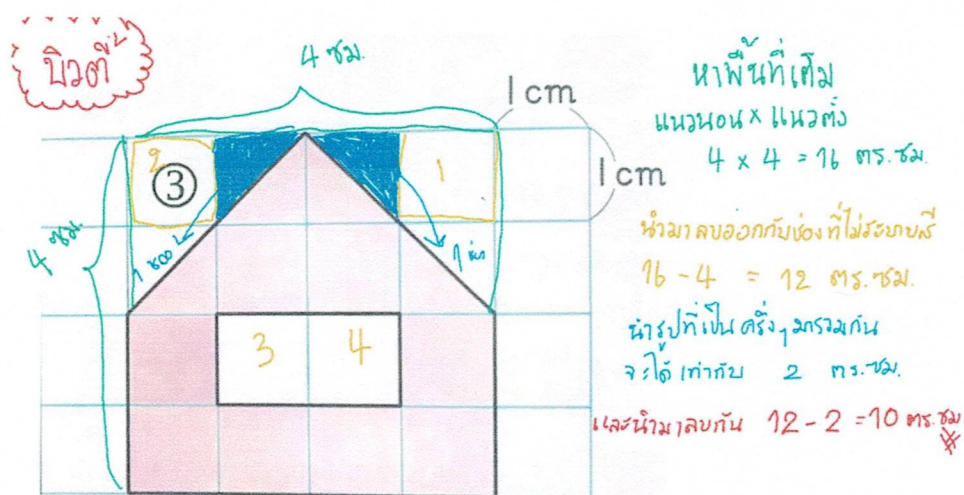 บิวตี้
4 ซม.
1 cm
1 cm
4 ซม.
2
③
1
1 ช่อง
1 ช่อง
3
4
หาพื้นที่เต็ม
แนวนอน x แนวตั้ง
4 x 4 = 16 ตร.ซม.
นำมาลบออกกับช่องที่ไม่ระบายสี
16 - 4 = 12 ตร.ซม.
นำรูปที่เป็นครึ่งๆมารวมกัน
จะได้เท่ากับ 2 ตร.ซม.
และนำมาลบกัน 12 - 2 = 10 ตร.ซม